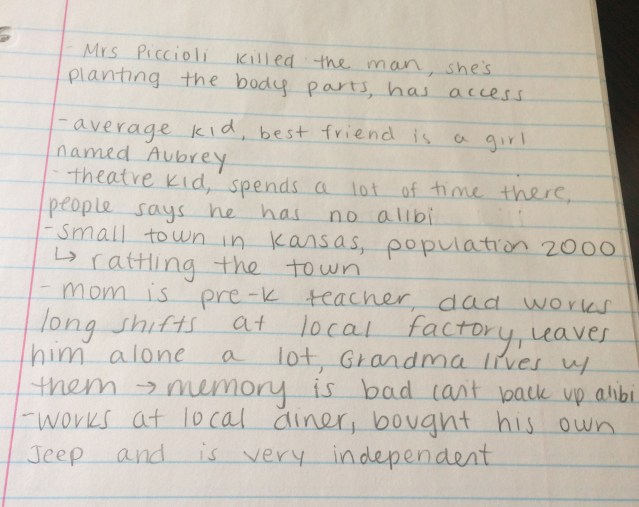 - Mrs Piccioli killed the man, she's
planting the body parts, has access
- average kid, best friend is a girl
named Aubrey
- theatre kid, spends a lot of time there,
people says he has no alibi
- small town in Kansas, population 2000
↳ rattling the town
- mom is pre-k teacher, dad works
long shifts at local factory, leaves
him alone a lot, Grandma lives w/
them → memory is bad can't back up alibi
- works at local diner, bought his own
Jeep and is very independent